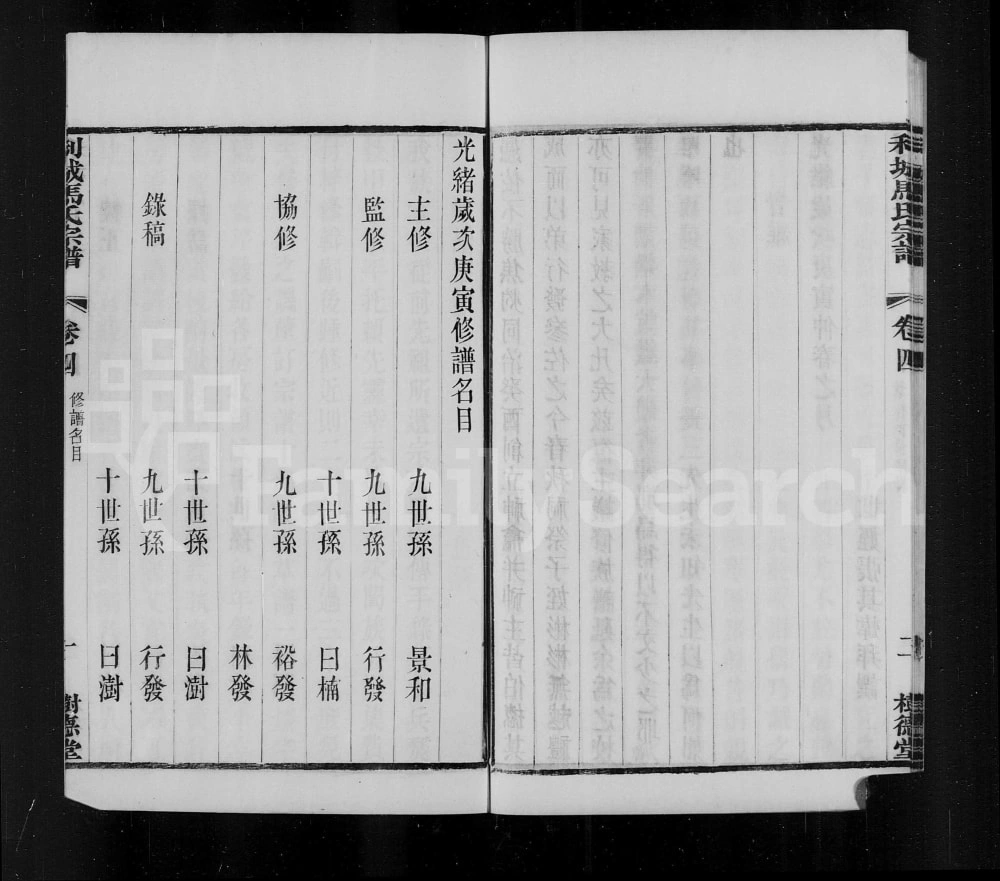 利城馬氏宗譜 卷四 二 樹德堂
光緒歲次庚寅修譜名目
主修 九世孫 景和
監修 九世孫 行發
十世孫 曰楠
協修 九世孫 裕發
林發
十世孫 曰澍
錄稿 九世孫 行發
十世孫 曰澍
利城馬氏宗譜 卷四 修譜名目 一 樹德堂
FamilySearch